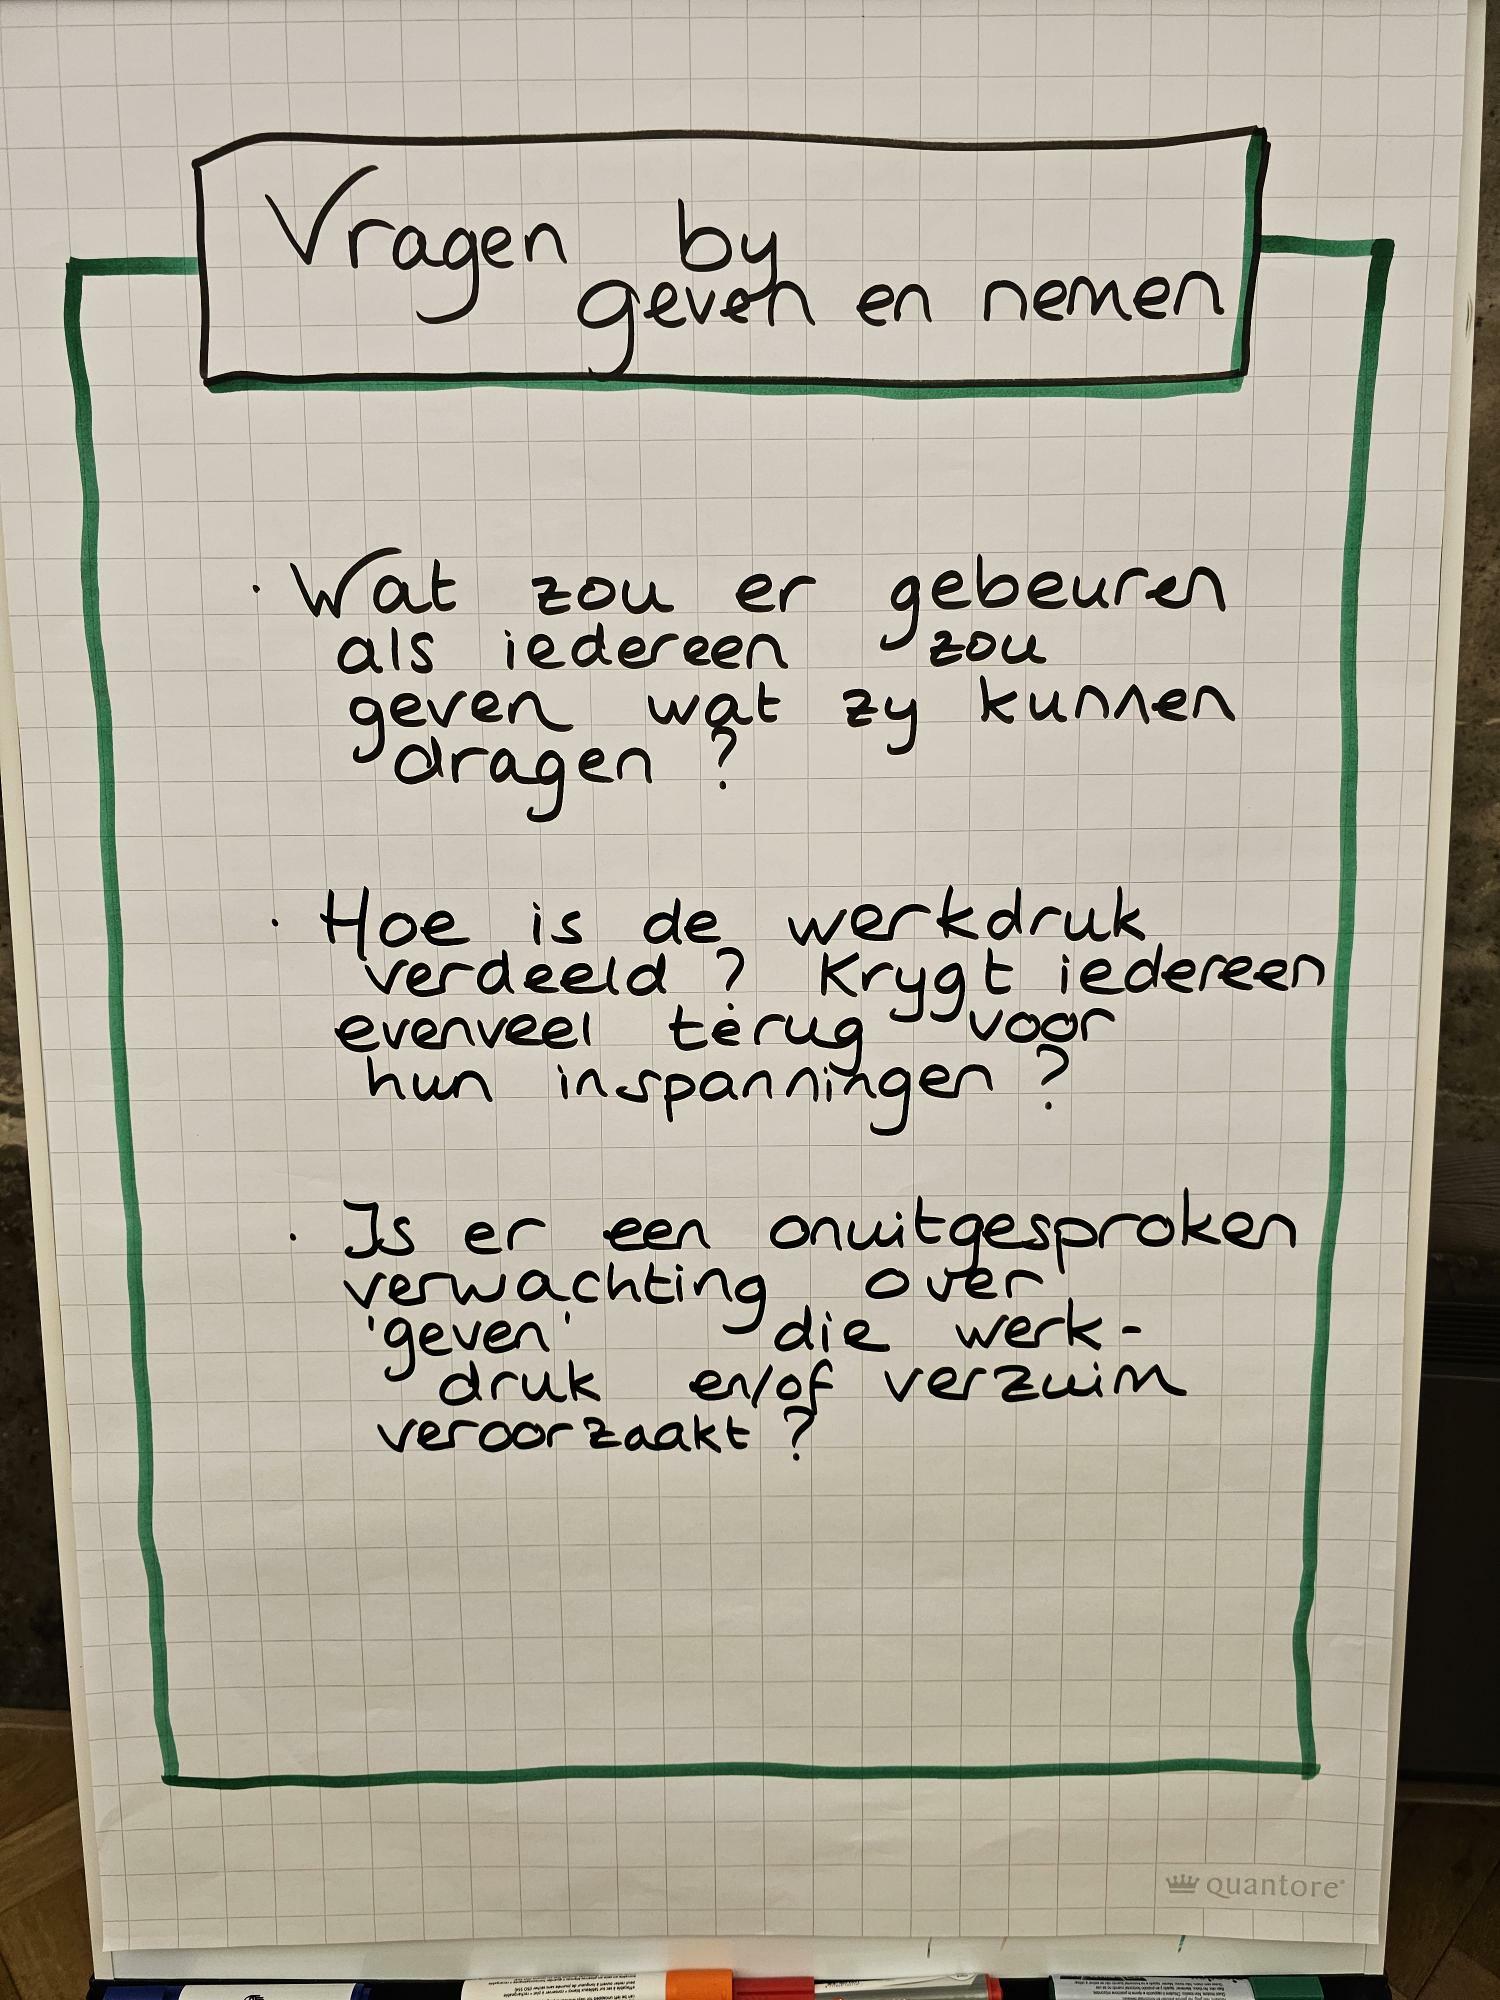 Vragen by
geven en nemen
· Wat zou er gebeuren
als iedereen zou
geven wat zy kunnen
dragen ?
· Hoe is de werkdruk
verdeeld ? Krygt iedereen
evenveel terug voor
hun inspanningen ?
· Is er een onuitgesproken
verwachting over
'geven' die werk-
druk en/of verzuim
veroorzaakt ?
quantore